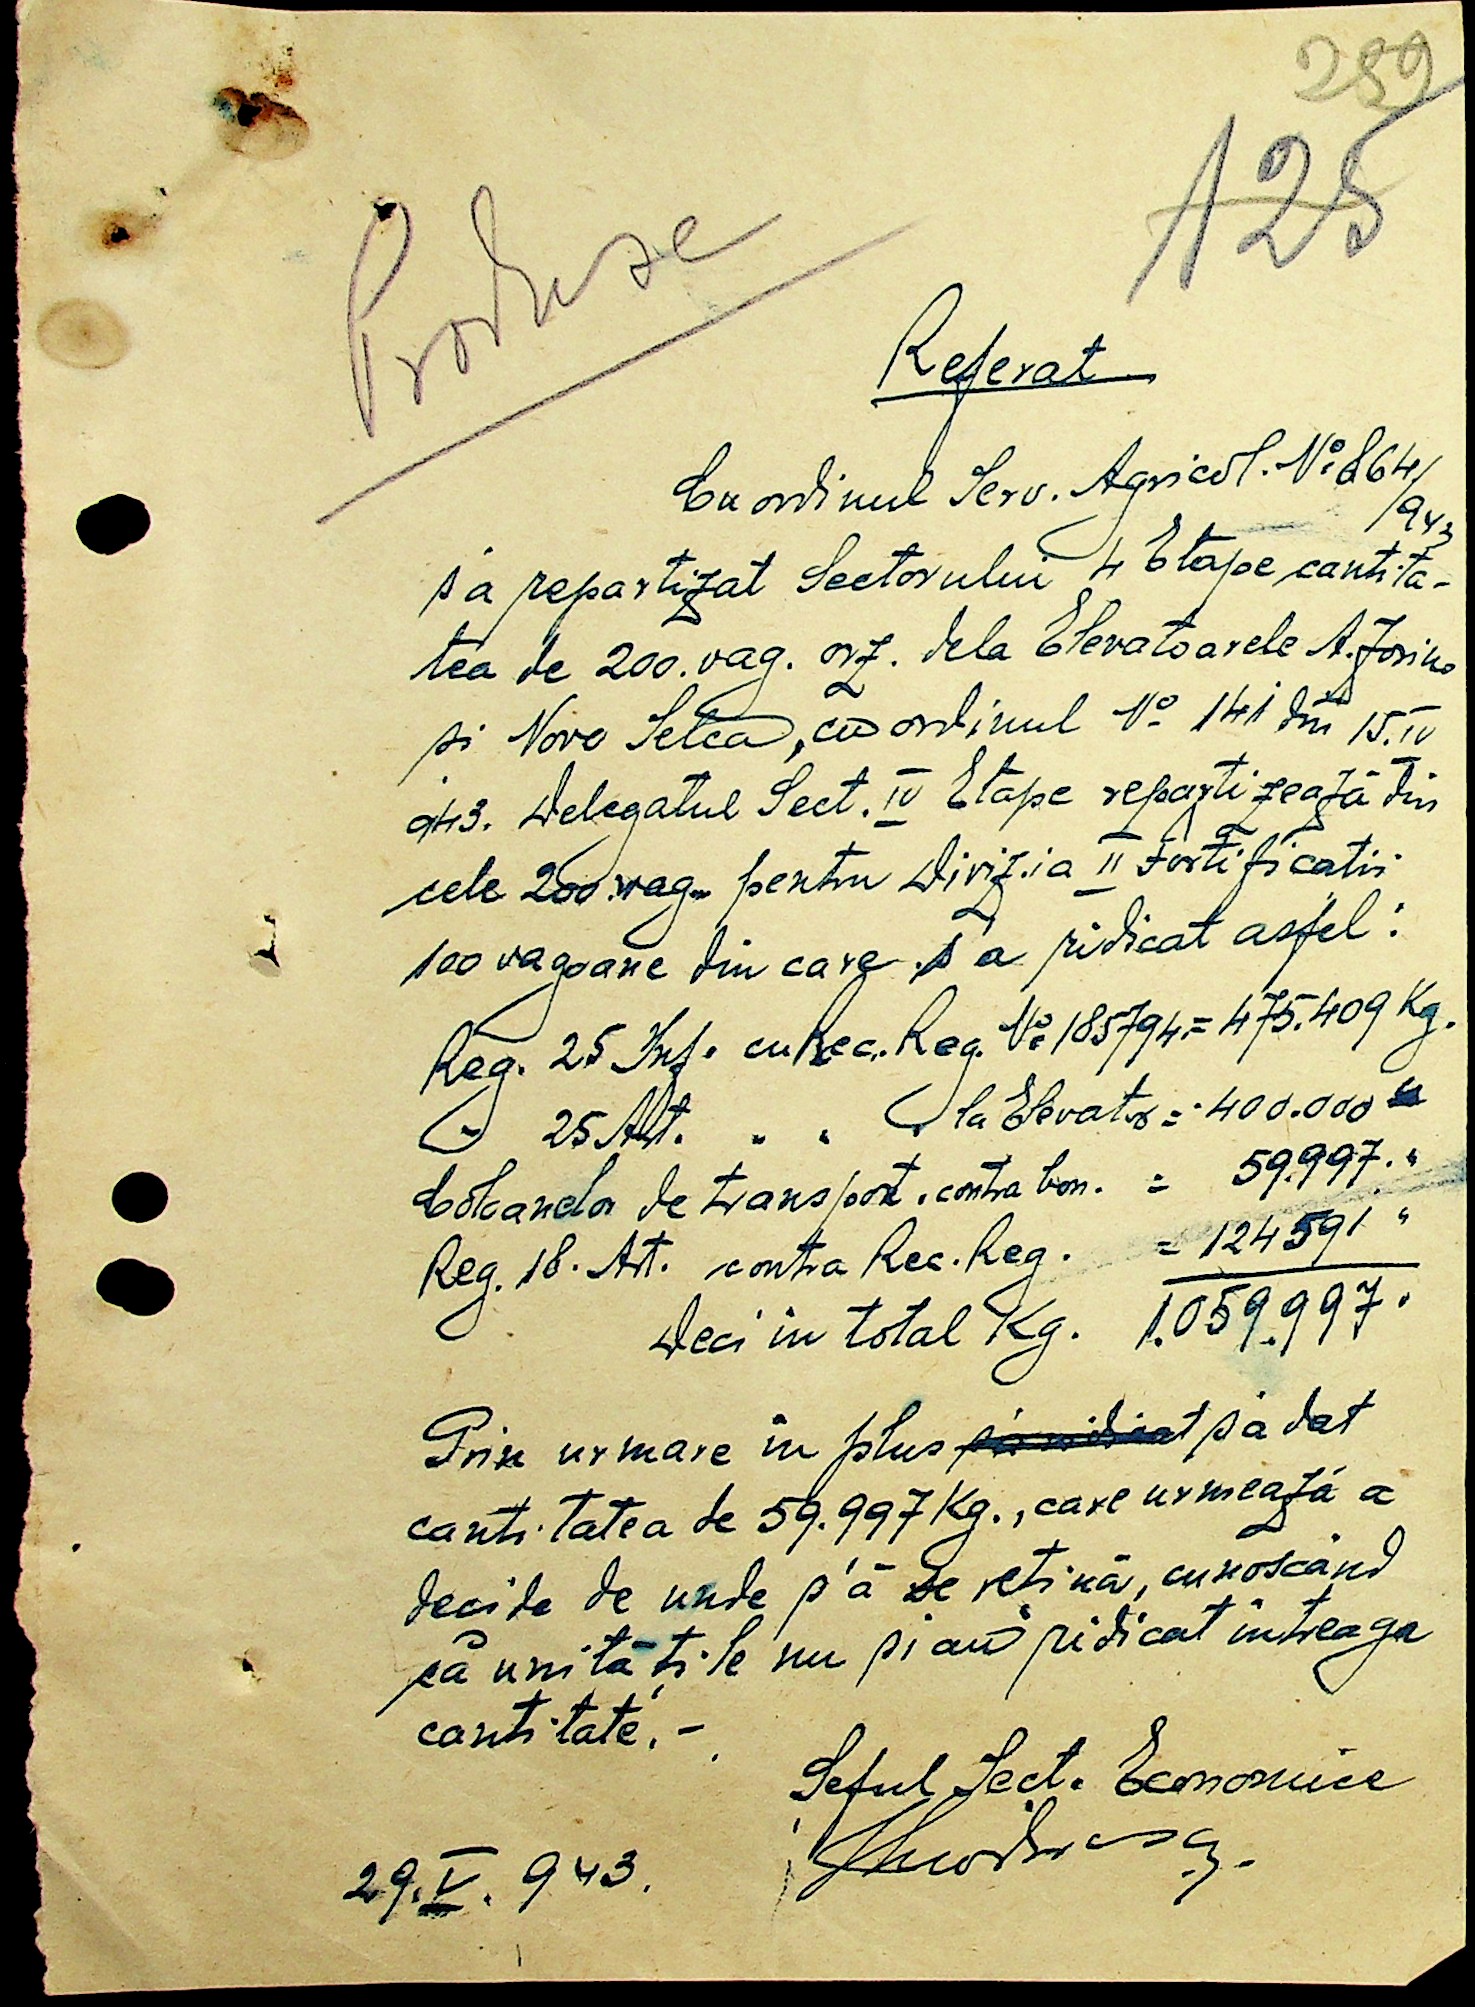 289
125
Produse
Referat
Cu ordinul Serv. Agricol. No: 864/943
s'a repartizat Sectorului 4 Etape cantita-
tea de 200. vag. orz. dela Elevatoarele A.
si Novo Setca, cu ordinul No 141 din 15.IV
943. Delegatul Sect. IV Etape repartizează din
cele 200 vag. pentru Divizia II Fortificatii
100 vagoane din care s'a ridicat astfel:
Reg. 25 Inf. cu Rec. Reg. No: 185794 = 475.409 Kg.
" 25 Art. " " " la Elevator = 400.000 "
Coloanelor de transport. contra bon. = 59.997. "
Reg. 18. Art. contra Rec. Reg. = 124591 "
Deci in total Kg. 1.059.997.
Prin urmare in plus s'a ridicat s'a dat
cantitatea de 59.997 Kg., care urmează a
decide de unde s'ă se retină, cunoscând
că unitătile nu si au ridicat intreaga
cantitate. -
Seful Sect. Economice
29.V.943.